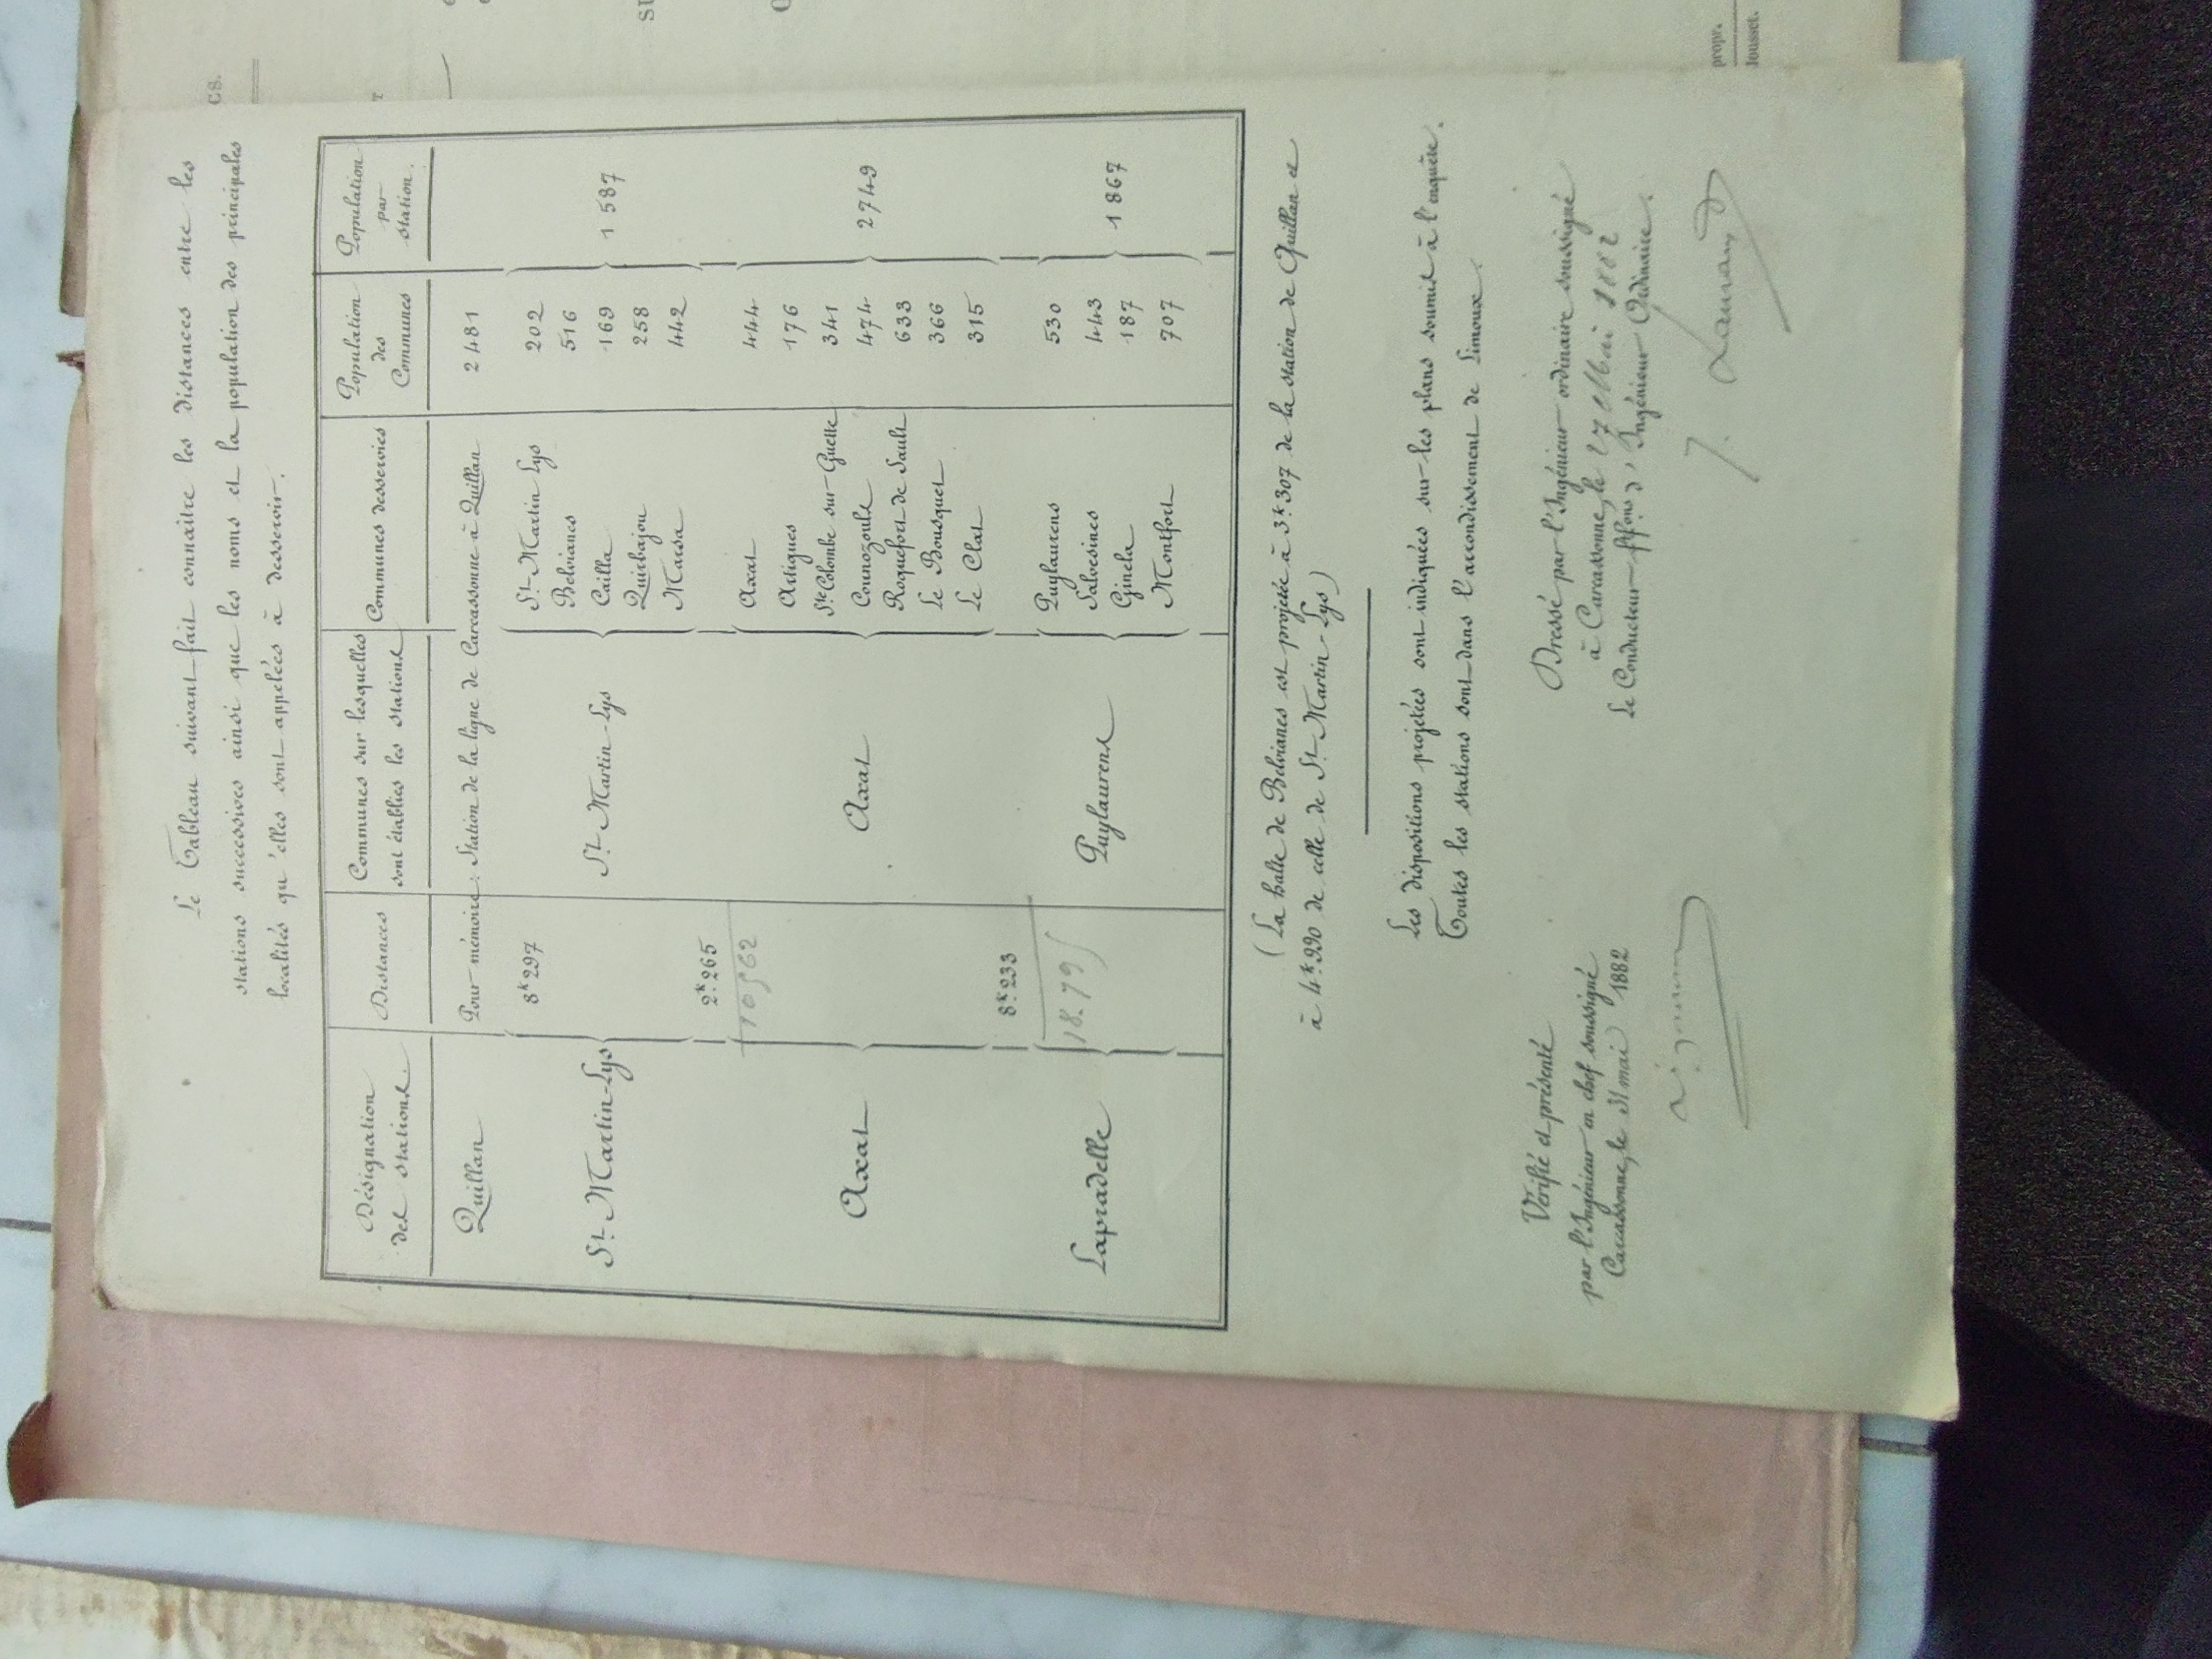 Le Tableau suivant fait connaître les distances entre les
stations successives ainsi que les noms et la population des principales
localités qu'elles sont appelées à desservir.
Désignation des stations. Distances Communes sur lesquelles sont établies les stations Communes desservies Population des Communes Population par station.
Quillan Pour mémoire : Station de la ligne de Carcassonne à Quillan 2 481
8k297 St Martin Lys 202
Belvianes 516
St Martin-Lys St Martin-Lys Cailla 169 1 587
Quirbajou 258
Marsa 442
2k.265
10562 Axat 444
Artigues 176
Ste Colombe sur Guette 341
Axat Axat Counozouls 474 2749
Roquefort de Sault 633
Le Bousquet 366
Le Clat 315
8k.233
18.795 Puylaurens 530
Lapradelle Puylaurens Salvesines 443 1 867
Ginela 187
Montfort 707
(La halte de Belvianes est projetée à 3k.307 de la station de Quillan et
à 4k.990 de celle de St Martin-Lys)
Les dispositions projetées sont indiquées sur les plans soumis à l'enquête.
Toutes les stations sont dans l'arrondissement de Limoux.
Vérifié et présenté
par l'Ingénieur en chef soussigné
Carcassonne, le 31 mai 1882
Dressé par l'Ingénieur ordinaire soussigné
à Carcassonne, le 27 Mai 1882
Le Conducteur ff.ons d'Ingénieur Ordinaire.
CS.
propr.
Jousset.